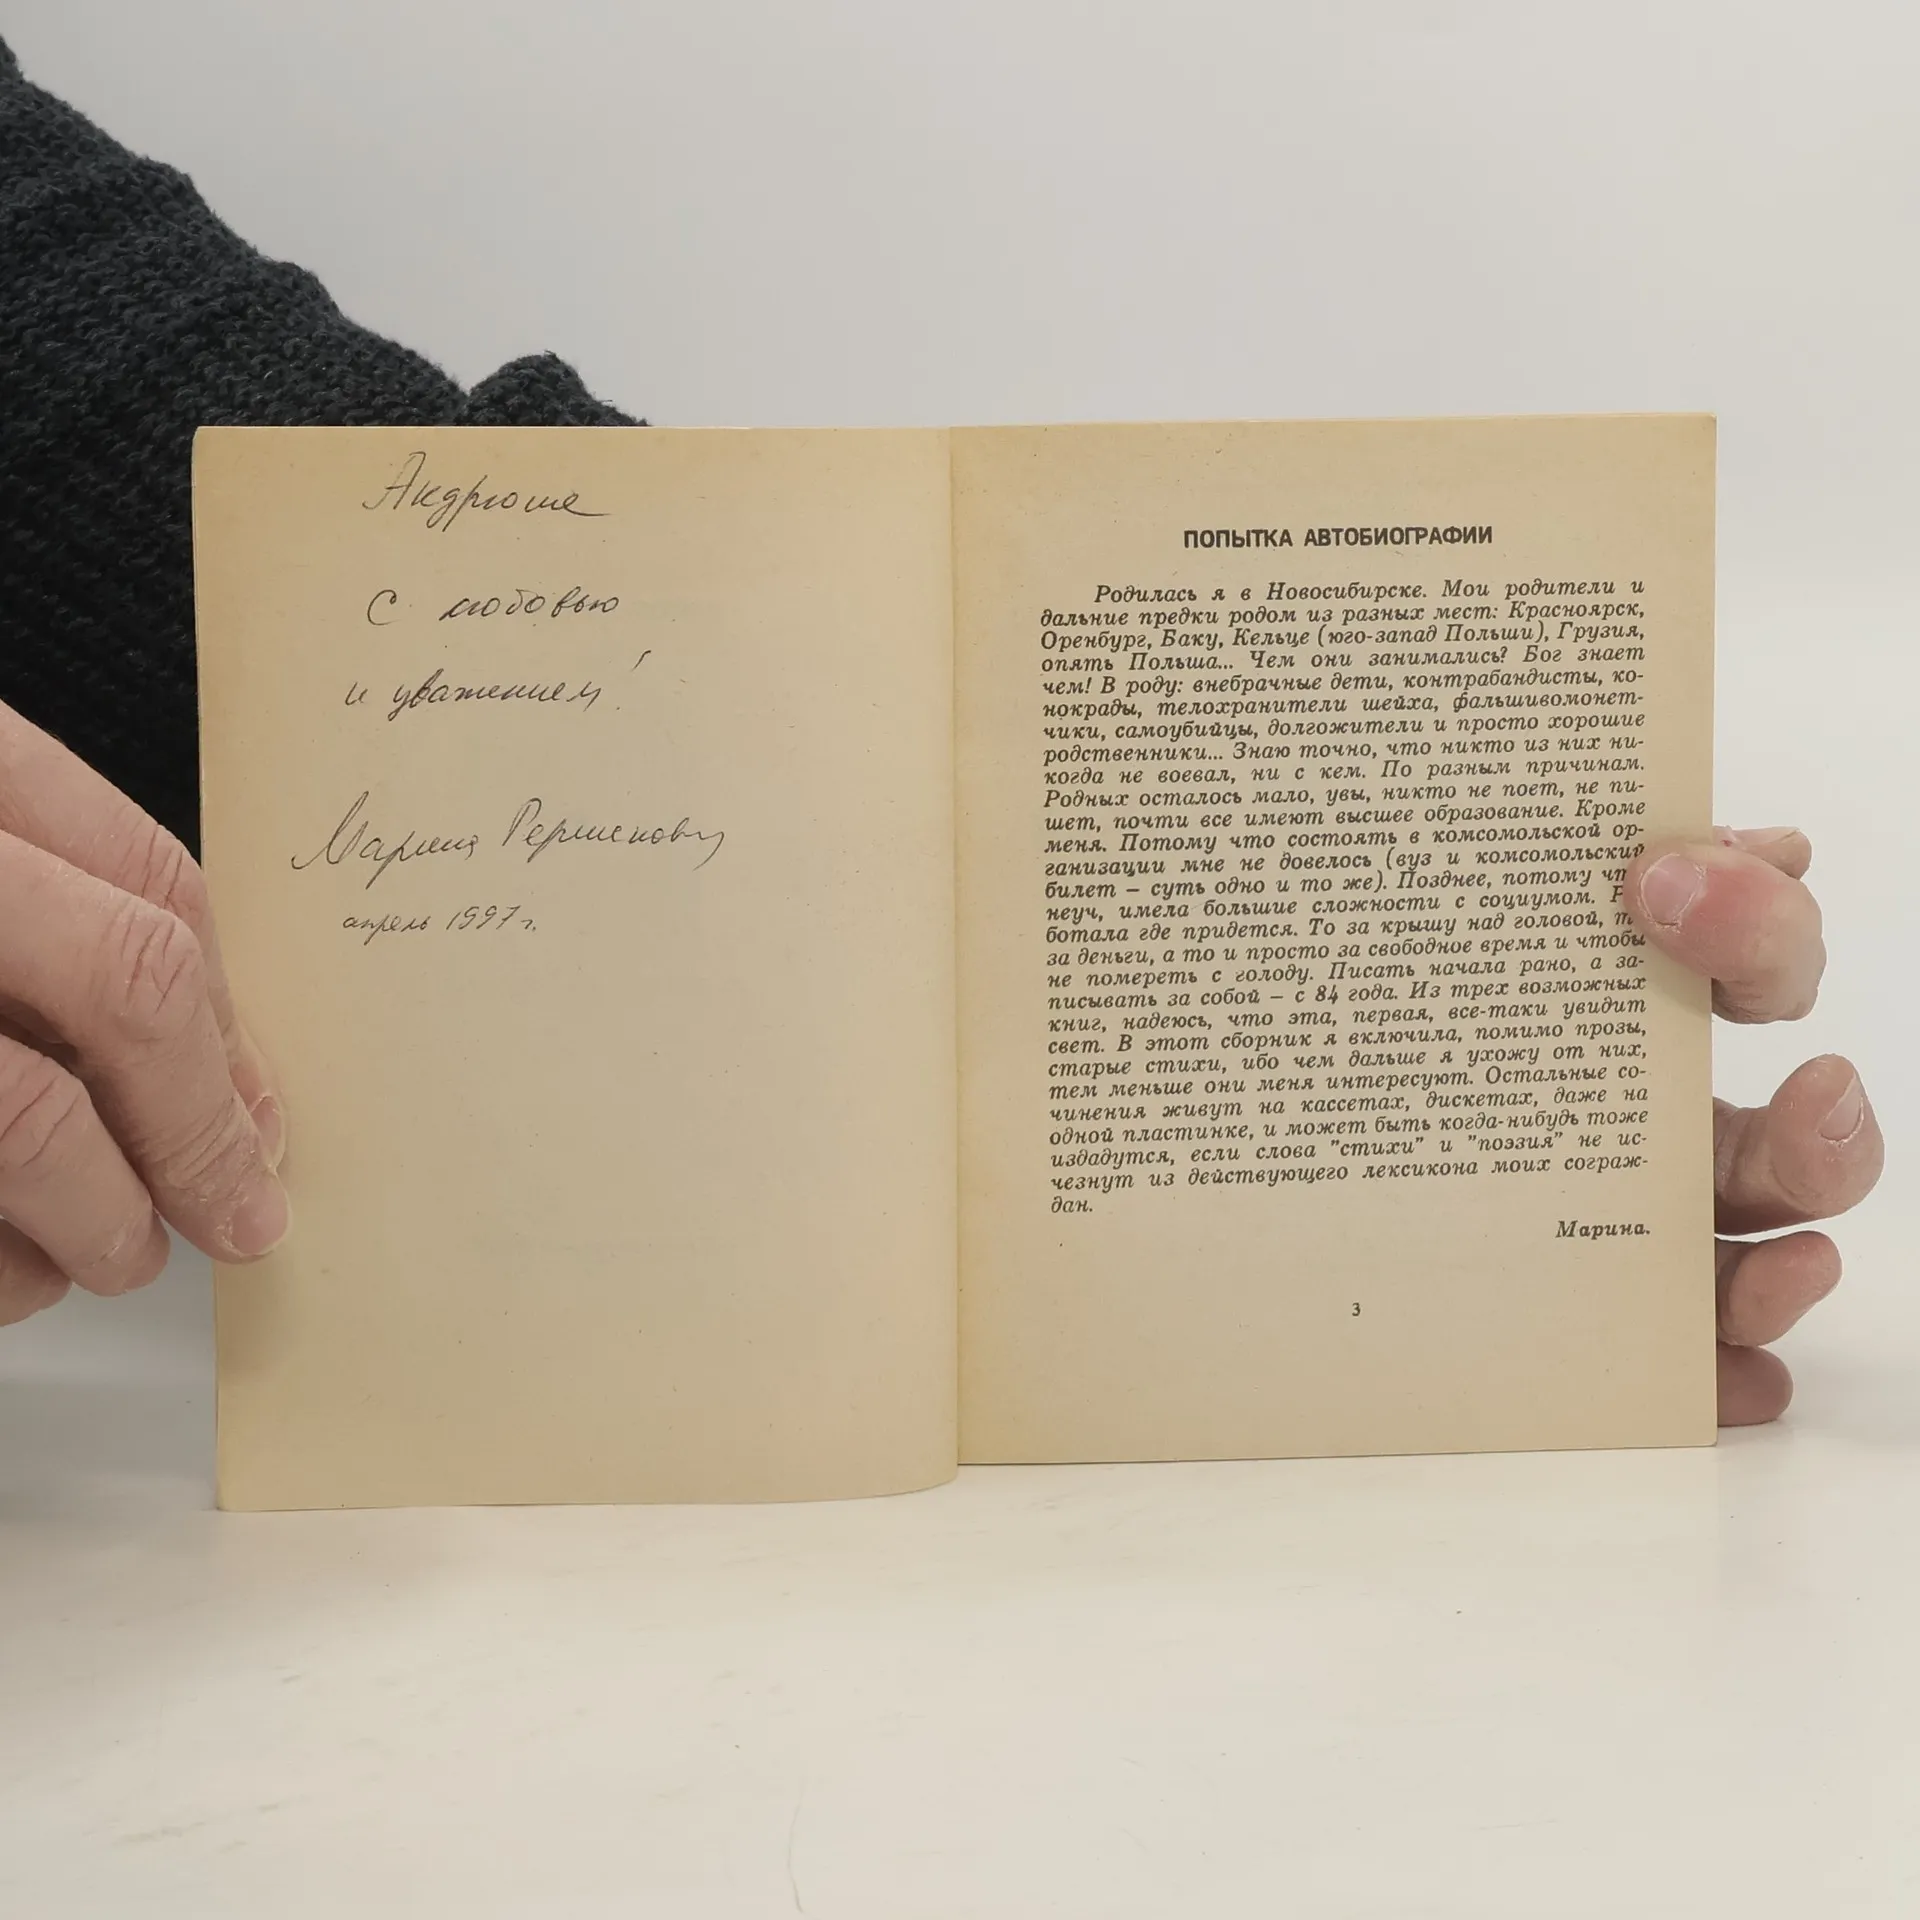 Андрюше
С любовью
и уважением!
Марина
апрель 1997 г.
ПОПЫТКА АВТОБИОГРАФИИ
Родилась я в Новосибирске. Мои родители и
дальние предки родом из разных мест: Красноярск,
Оренбург, Баку, Кельце (юго-запад Польши), Грузия,
опять Польша... Чем они занимались? Бог знает
чем! В роду: внебрачные дети, контрабандисты, ко-
нокрады, телохранители шейха, фальшивомонет-
чики, самоубийцы, долгожители и просто хорошие
родственники... Знаю точно, что никто из них ни-
когда не воевал, ни с кем. По разным причинам.
Родных осталось мало, увы, никто не поет, не пи-
шет, почти все имеют высшее образование. Кроме
меня. Потому что состоять в комсомольской ор-
ганизации мне не довелось (вуз и комсомольский
билет – суть одно и то же). Позднее, потому
неуч, имела большие сложности с социумом.
ботала где придется. То за крышу над головой,
за деньги, а то и просто за свободное время и чтобы
не помереть с голоду. Писать начала рано, а за-
писывать за собой – с 84 года. Из трех возможных
книг, надеюсь, что эта, первая, все-таки увидит
свет. В этот сборник я включила, помимо прозы,
старые стихи, ибо чем дальше я ухожу от них,
тем меньше они меня интересуют. Остальные со-
чинения живут на кассетах, дискетах, даже на
одной пластинке, и может быть когда-нибудь тоже
издадутся, если слова "стихи" и "поэзия" не ис-
чезнут из действующего лексикона моих сограж-
дан.
Марина.
3